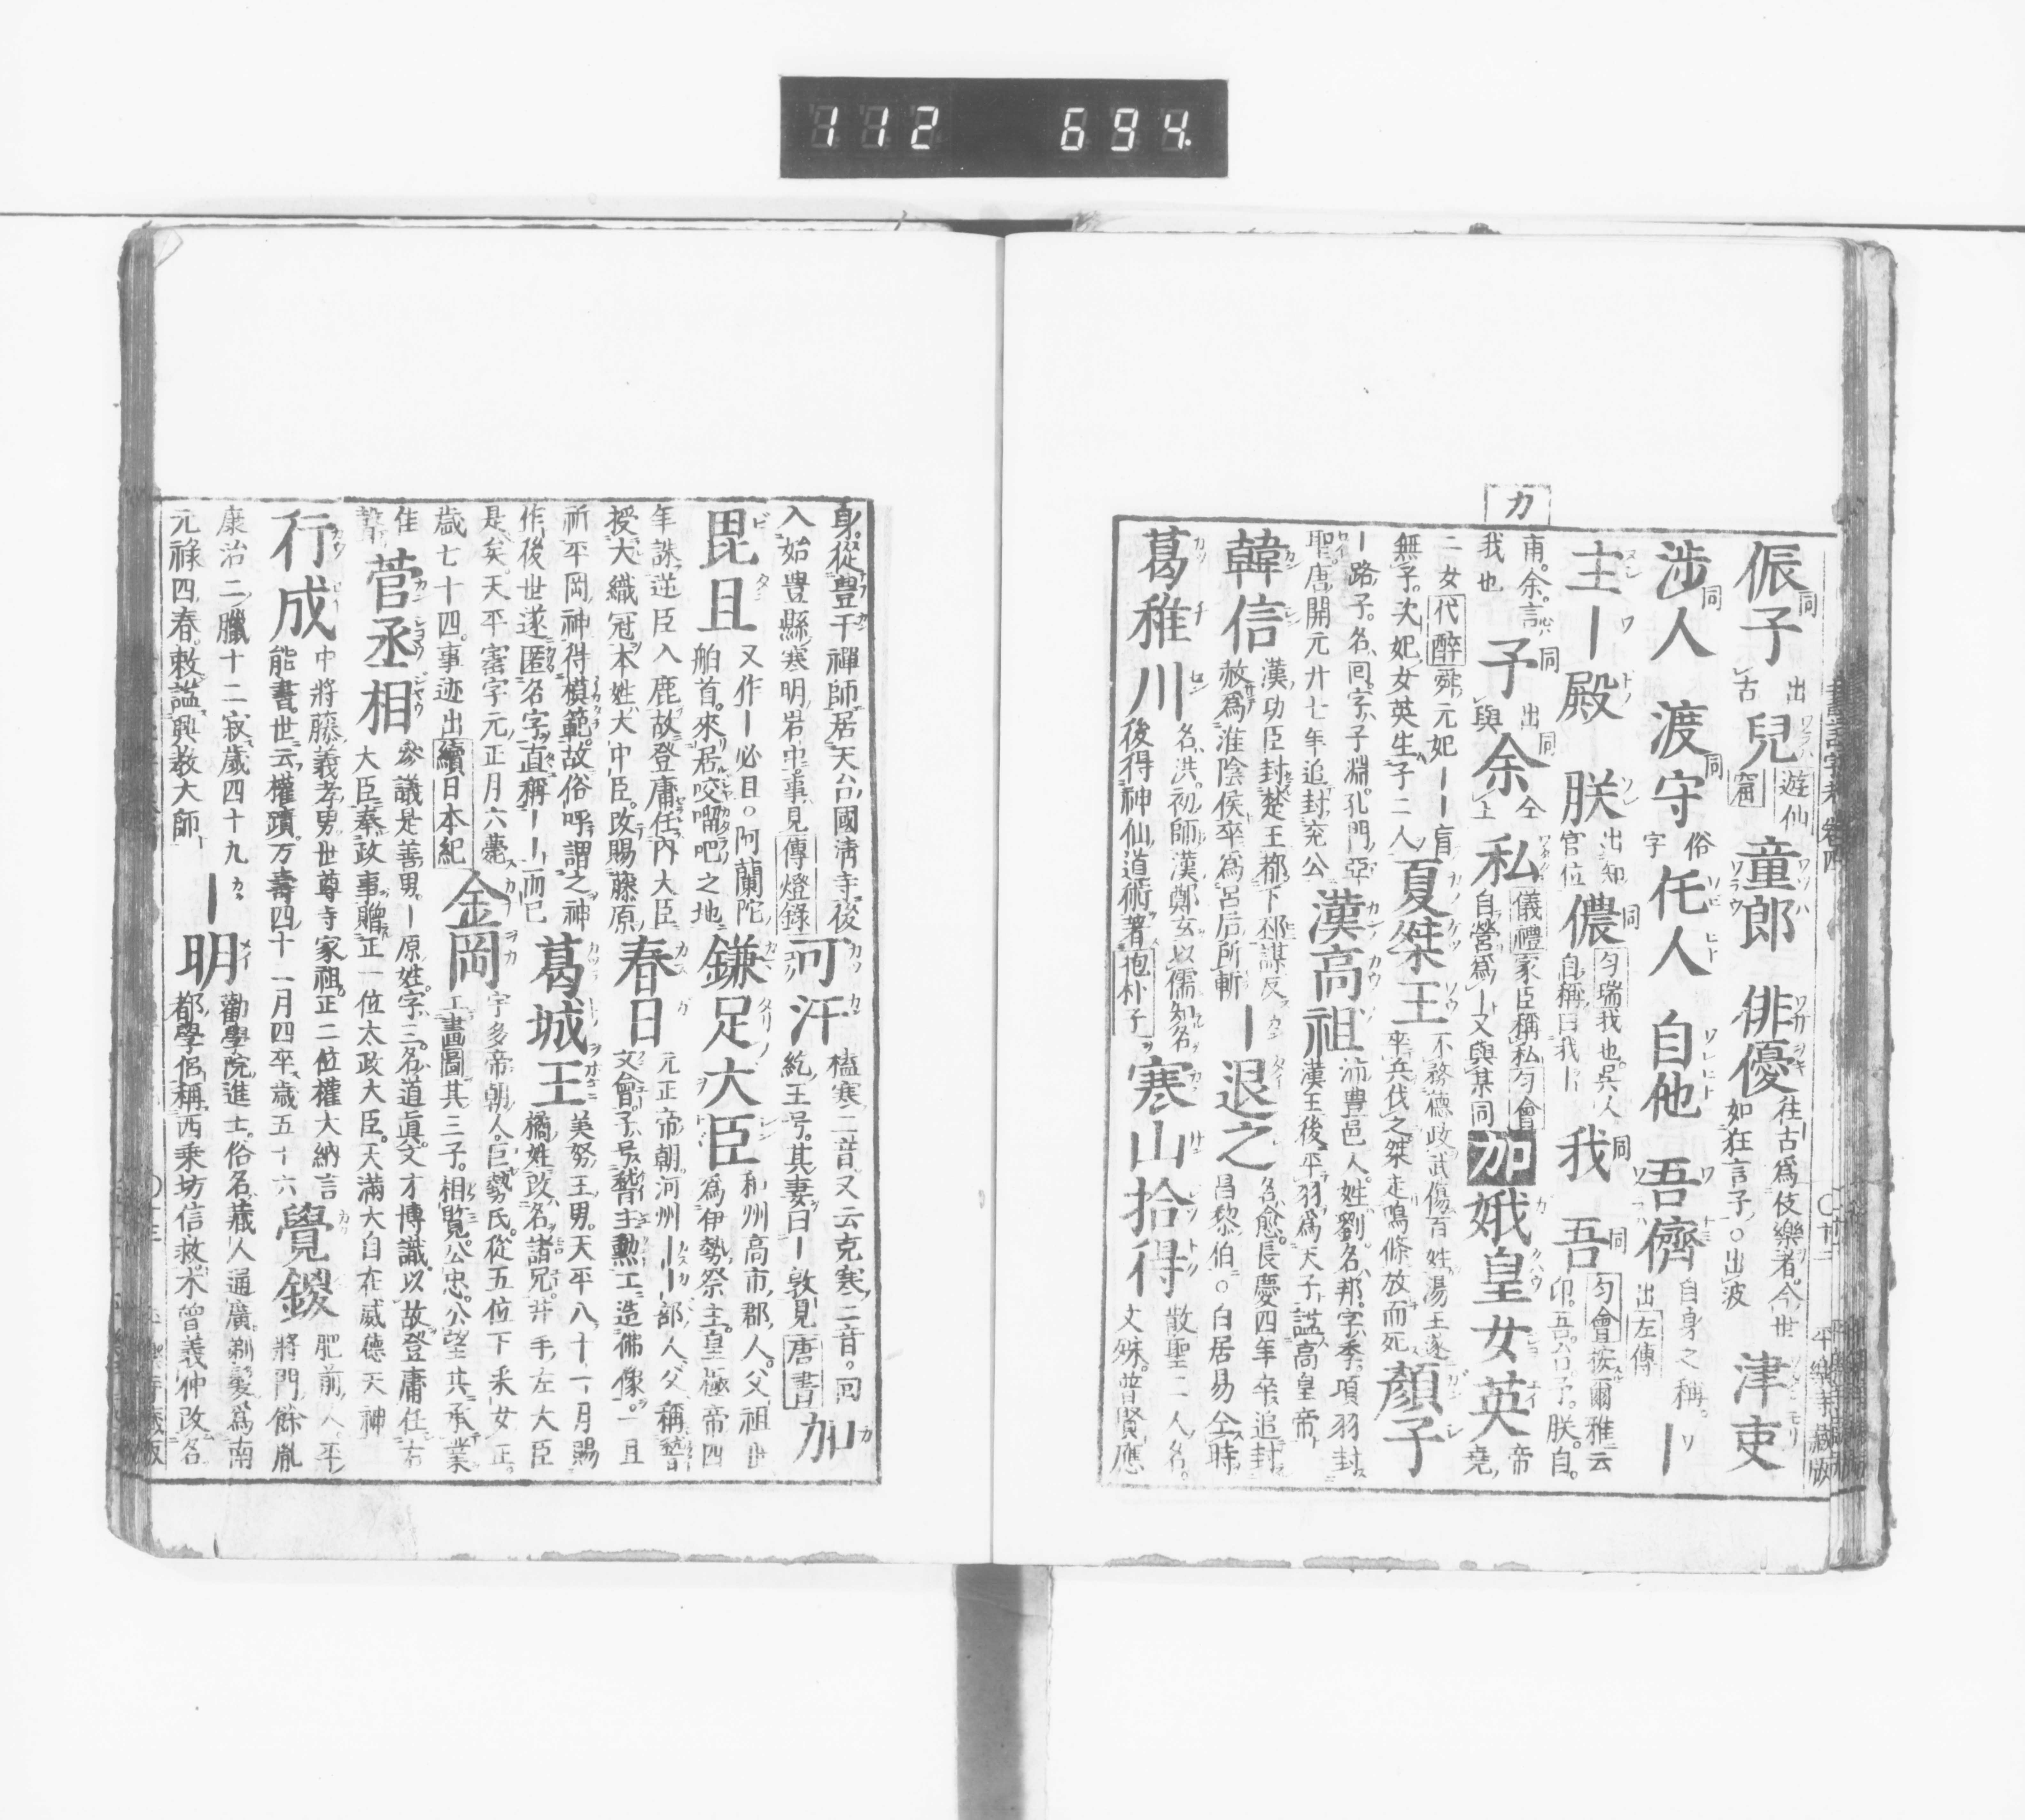 112 694.
カ
侲子 同 出古
兒 遊仙窟
童郎
俳優 往古爲伎樂者今世如狂言子○出波
津吏
涉人 同
渡守 同
俗字 仛人
自他
吾儕 自身之稱出左傳
主｜殿
朕 出知官位
儂 同 匀瑞我也吳人自稱曰我｜
我 同
吾 同 匀會按爾雅云卬吾台予朕自
甫余言我也
予 同 出與
余 同 仝上
私 儀禮家臣稱私匀會自營爲｜又與某同
加
娥皇女英 帝堯
二女代醉舜元妃｜｜盲無子次妃女英生子二人
夏桀王 不務德政武傷百姓湯王遂率兵伐之桀走鳴條放而死
顏子
｜路子名回字子淵孔門亞聖唐開元廿七年追封兖公
漢高祖 沛豊邑人姓劉名邦字季項羽封漢王後平羽爲天子諡高皇帝
韓信 漢功臣封楚王都下邳謀反赦爲淮陰侯卒爲呂后所斬
｜退之 名愈長慶四年卒追封昌黎伯○白居易仝時
葛稚川 名洪初師漢鄭玄以儒知名後得神仙道術著抱朴子
寒山拾得 散聖二人名文殊普賢應
身從豊干禪師居天台國淸寺後入始豊縣寒明岩中事見傳燈錄
可汗 榼寒二音又云克寒二音回紇王号其妻曰｜敦見唐書
加
毘且 又作｜必且○阿蘭陀舶首來居咬𠺕吧之地
鎌足大臣 和州高市郡人父祖世爲伊勢祭主皇極帝四
年誅逆臣入鹿故登庸任内大臣授大織冠本姓大中臣改賜藤原
春日 元正帝朝河州｜｜部人父稱譬文會子号譬主勲工造佛像一旦
祈平岡神得模範故俗呼謂之神作後世遂匿名字直稱｜｜而已
葛城王 美努王男天平八十一月賜橘姓改名諸兄井手左大臣
是矣天平寳字元正月六薨歲七十四事迹出續日本紀
金岡 宇多帝朝人巨勢氏從五位下釆女正工畫圖其三子相覽公忠公望共承業
佳聲
菅丞相 參議是善男｜原姓字三名道眞文才博識以故登庸任右大臣奉政事贈正一位太政大臣天滿大自在威德天神
行成 中將藤義孝男世尊寺家祖正二位權大納言能書世云權蹟万壽四十一月四卒歲五十六
覺鑁 肥前人平將門餘胤
康治二臘十二寂歲四十九元祿四春敕諡興教大師
｜明 勸學院進士俗名藏人通廣剃髮爲南都學侶稱西乘坊信救木曾義仲改名